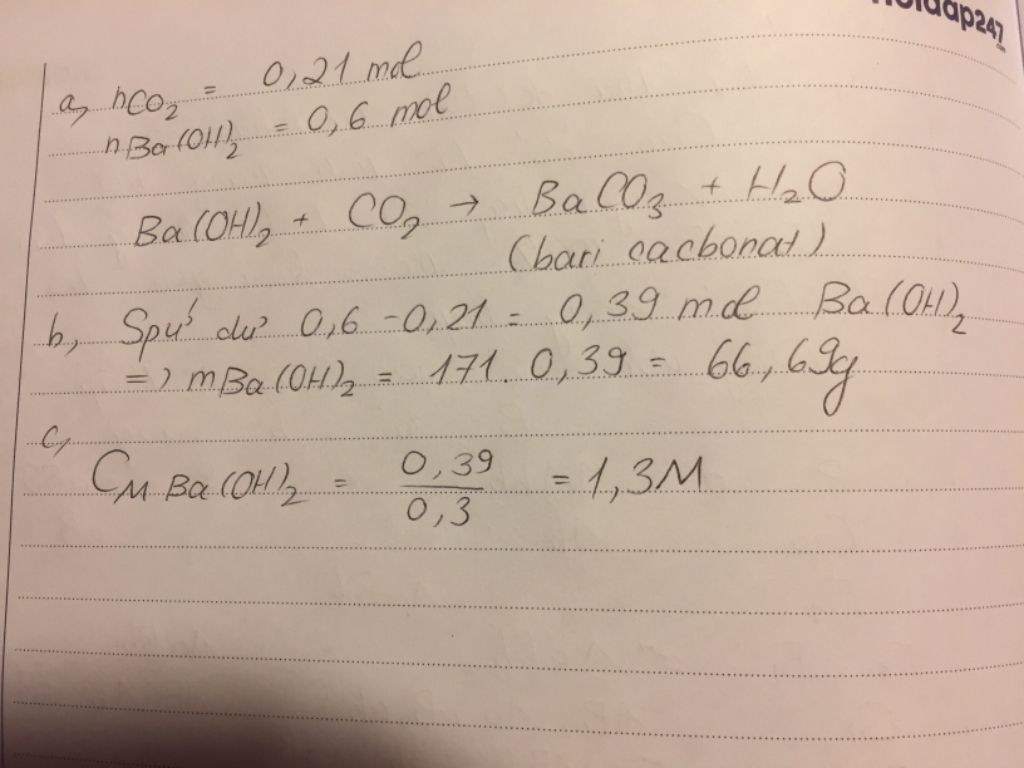 Hoidap247
.com
a, nCO₂ = 0,21 mol
nBa(OH)₂ = 0,6 mol
Ba(OH)₂ + CO₂ → BaCO₃ + H₂O
(bari cacbonat)
b, Spứ dư 0,6 - 0,21 = 0,39 mol Ba(OH)₂
=) mBa(OH)₂ = 171. 0,39 = 66,69g
c,
CM Ba(OH)₂ = 0,39/0,3 = 1,3M